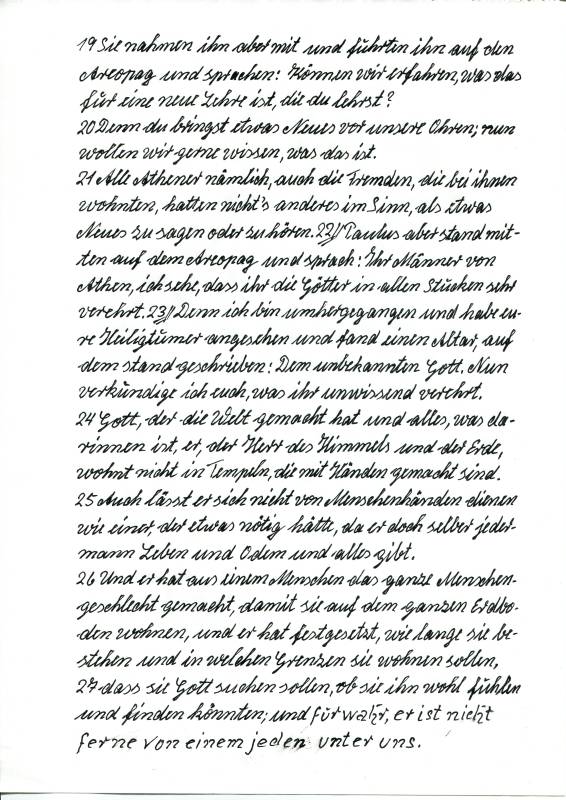 19 Sie nahmen ihn aber mit und führten ihn auf den
Areopag und sprachen: Können wir erfahren, was das
für eine neue Lehre ist, die du lehrst?
20 Denn du bringst etwas Neues vor unsere Ohren; nun
wollen wir gerne wissen, was das ist.
21 Alle Athener nämlich, auch die Fremden, die bei ihnen
wohnten, hatten nicht's anderes im Sinn, als etwas
Neues zu sagen oder zu hören. 22)/ Paulus aber stand mit-
ten auf dem Areopag und sprach: Ihr Männer von
Athen, ich sehe, dass ihr die Götter in allen Stücken sehr
verehrt. 23)/ Denn ich bin umhergegangen und habe eu-
re Heiligtümer angesehen und fand einen Altar, auf
dem stand geschrieben: Dem unbekannten Gott. Nun
verkündige ich euch, was ihr unwissend verehrt.
24 Gott, der die Welt gemacht hat und alles, was da-
rinnen ist, er, der Herr des Himmels und der Erde,
wohnt nicht in Tempeln, die mit Händen gemacht sind.
25 Auch lässt er sich nicht von Menschenhänden dienen
wie einer, der etwas nötig hätte, da er doch selber jeder-
mann Leben und Odem und alles gibt.
26 Und er hat aus einem Menschen das ganze Menschen-
geschlecht gemacht, damit sie auf dem ganzen Erdbo-
den wohnen, und er hat festgesetzt, wie lange sie be-
stehen und in welchen Grenzen sie wohnen sollen,
27 dass sie Gott suchen sollen, ob sie ihn wohl fühlen
und finden könnten; und fürwahr, er ist nicht
ferne von einem jeden unter uns.